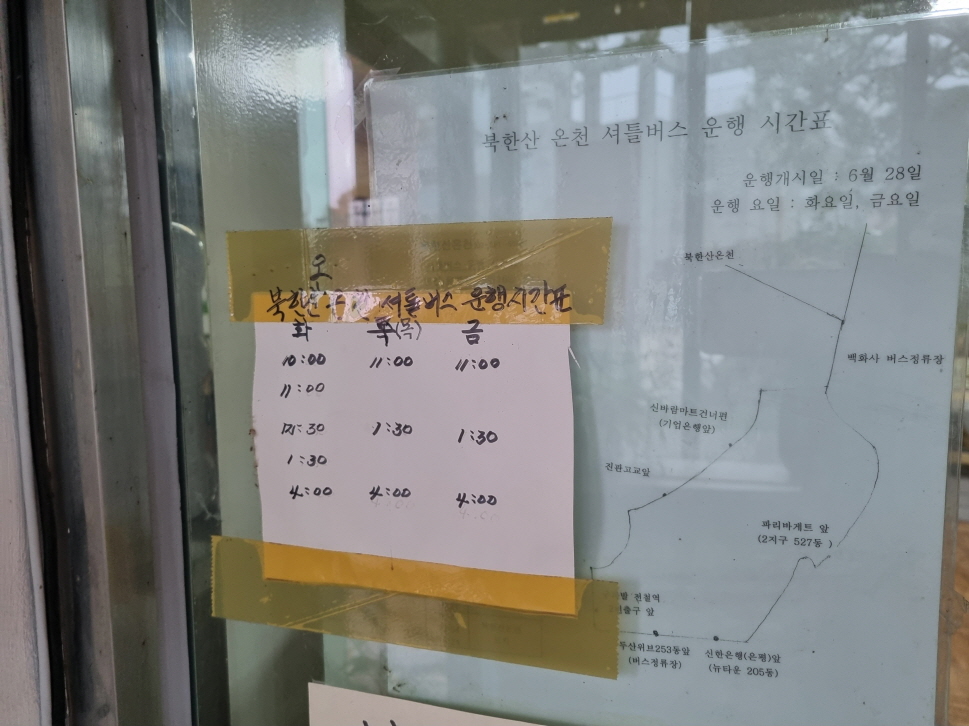 북한산 온천 셔틀버스 운행 시간표
운행개시일 : 6월 28일
운행 요일 : 화요일, 금요일
오
북한산 셔틀버스 운행시간표
화 목(목) 금
10:00 11:00 11:00
11:00
12:30 1:30 1:30
1:30
4:00 4:00 4:00
북한산온천
백화사 버스정류장
신바람마트건너편
(기업은행앞)
진관고교앞
파리바게트 앞
(2지구 527동 )
전철역
출구 앞
두산위브253동앞
(버스정류장)
신한은행(은평)앞
(뉴타운 205동)